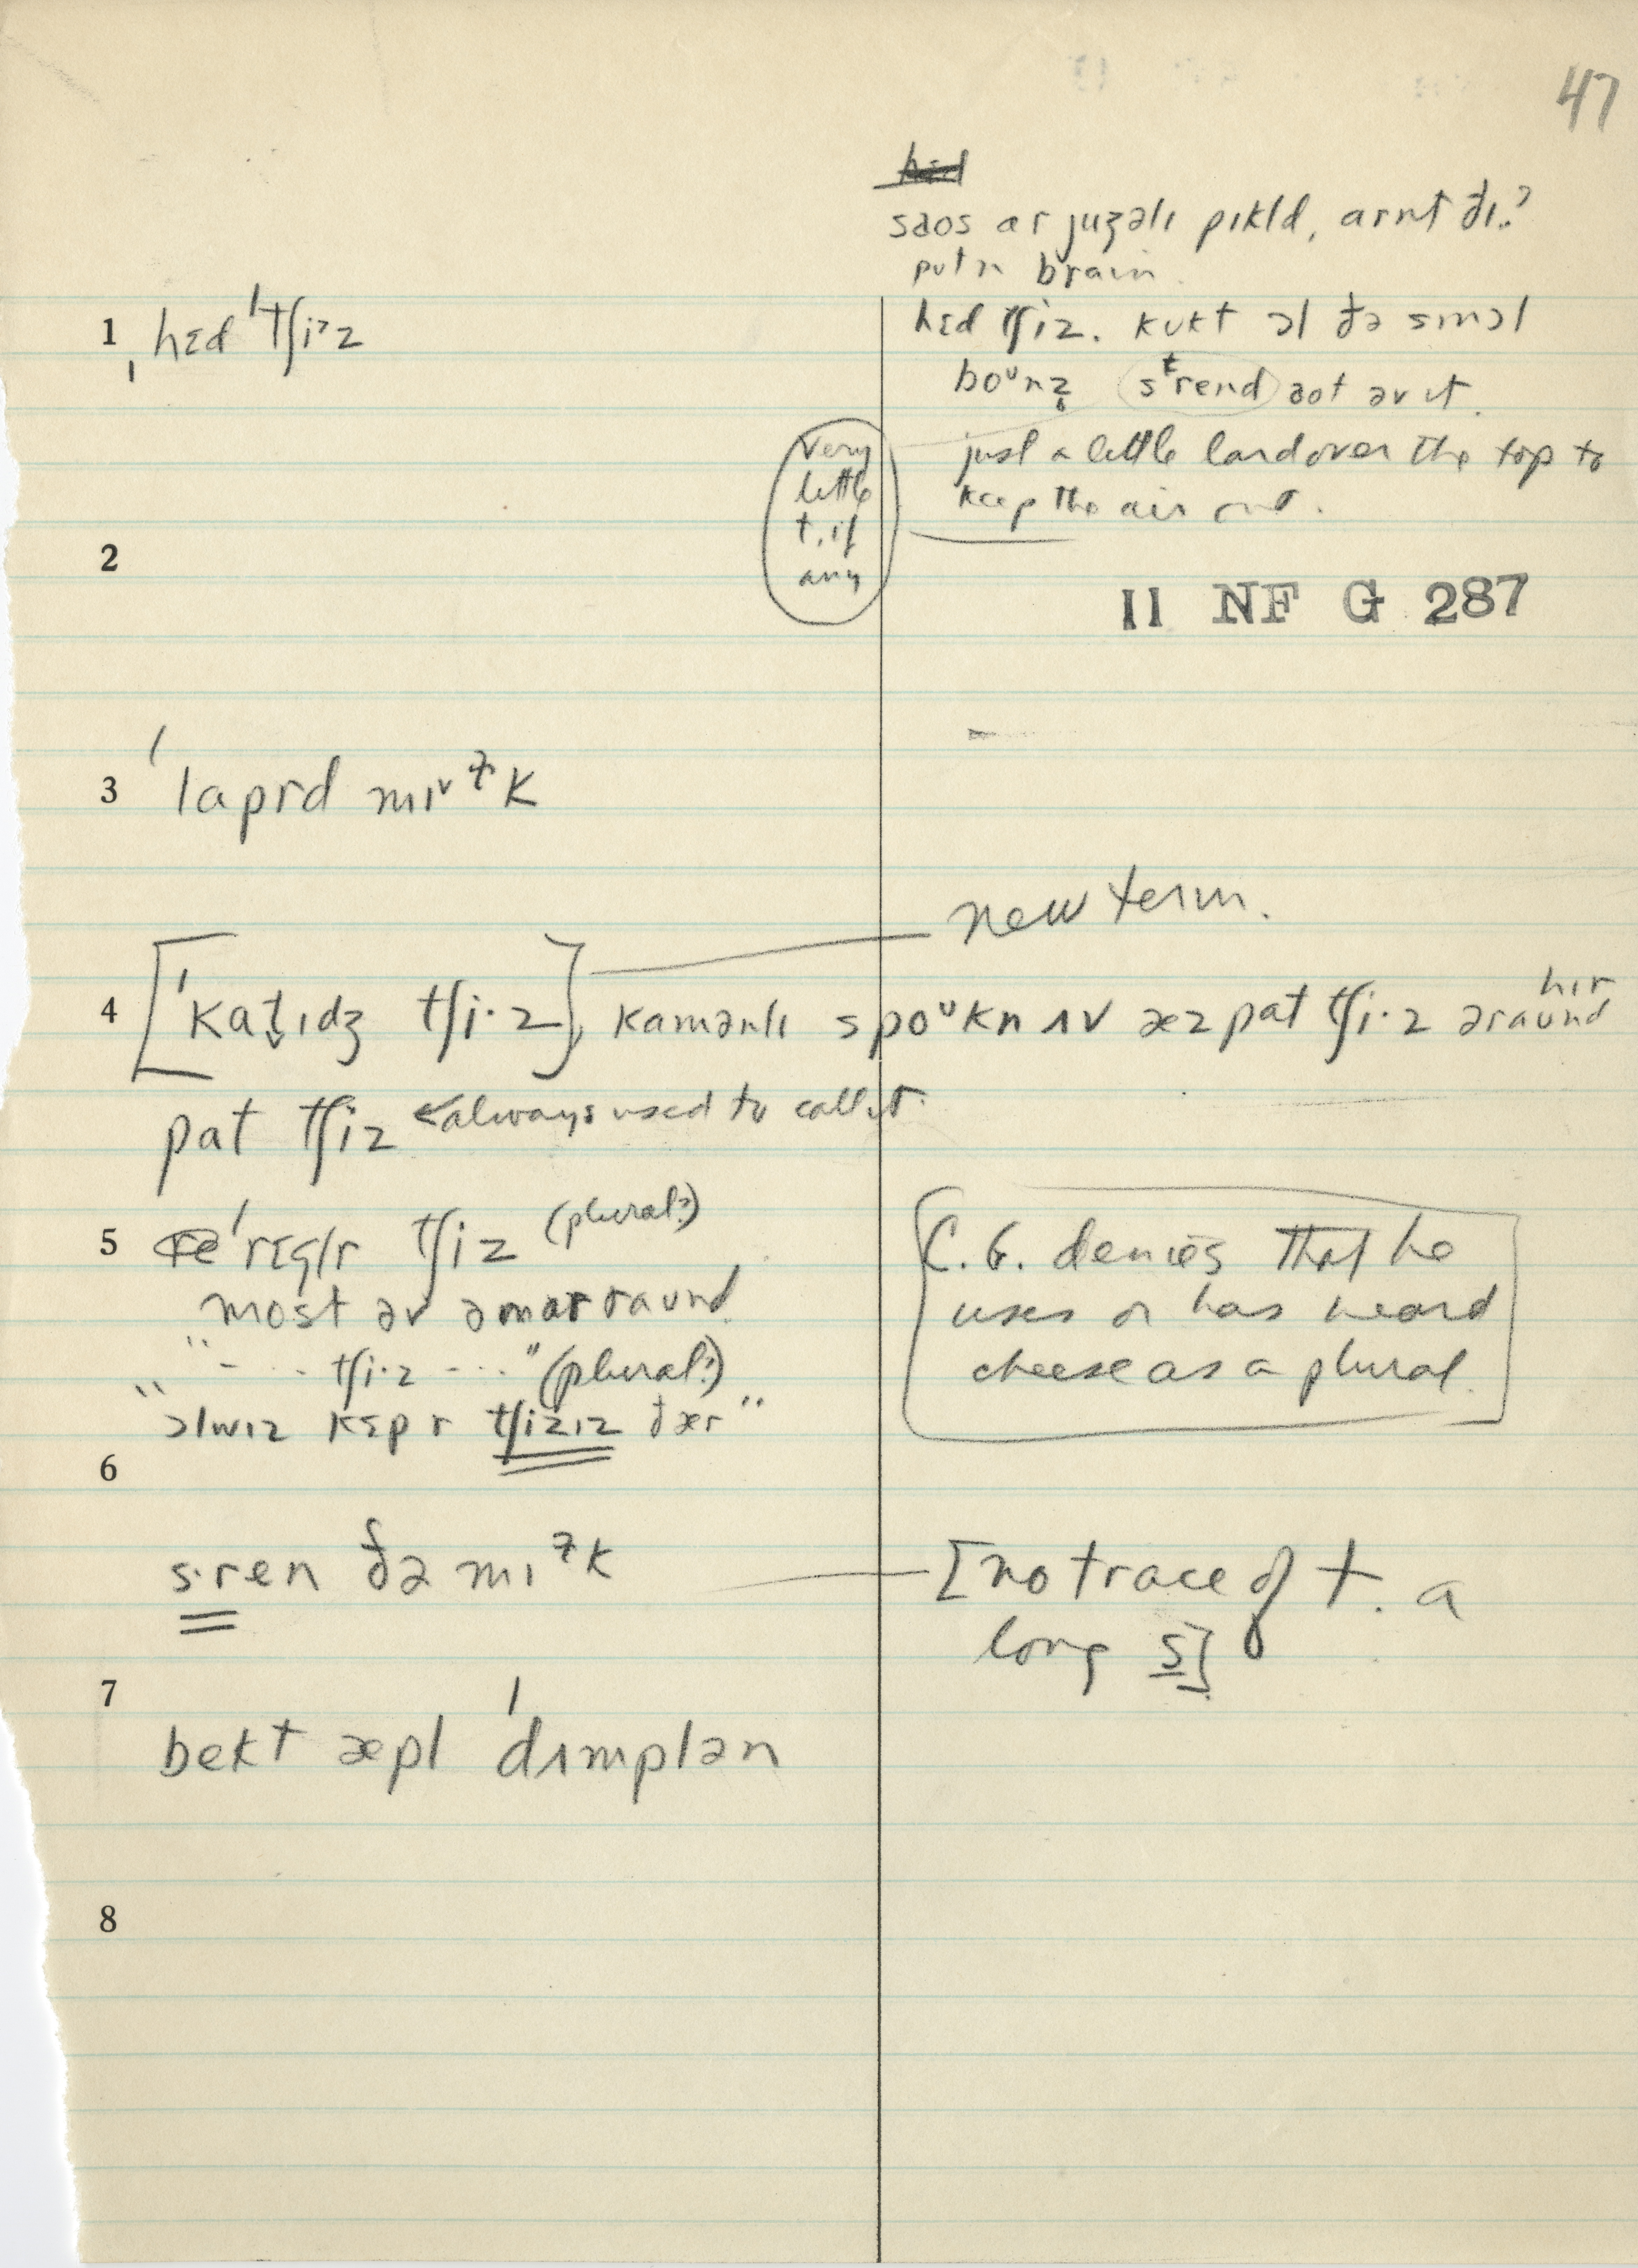 47
saʊs ar juʒəlɪ pɪkld, arnt ðɪ..?
put ɪn brain.
1 ˌhɛd ˈtʃiˀz
hɛd tʃiz. kʊkt ɔl ðə smɔl
boᵘnz̥ sᵗrend aʊt əv ɪt.
just a little lard over the top to
keep the air out.
very
little
t, if
any
2
11 NF G 287
3 ˈlaprd mɪᵛɫk
new term.
4 [ˈkat̬ɪdʒ tʃi·z], kamənlɪ spoᵘkn ʌv æz pat tʃi·z əraund hɪr
pat tʃiz ← always used to call it.
5 ˈrɛgl̩r tʃiz (plural?)
most əv əm ar raund
"- ... tʃi·z ---" (plural?)
"ɔlwɪz kɛp r tʃizɪz ðær"
C.G. denies that he
uses or has heard
cheese as a plural.
6
s·ren ðə mɪɫk
[no trace of t. a
long s]
7
bekt æpl ˈdʌmplən
8